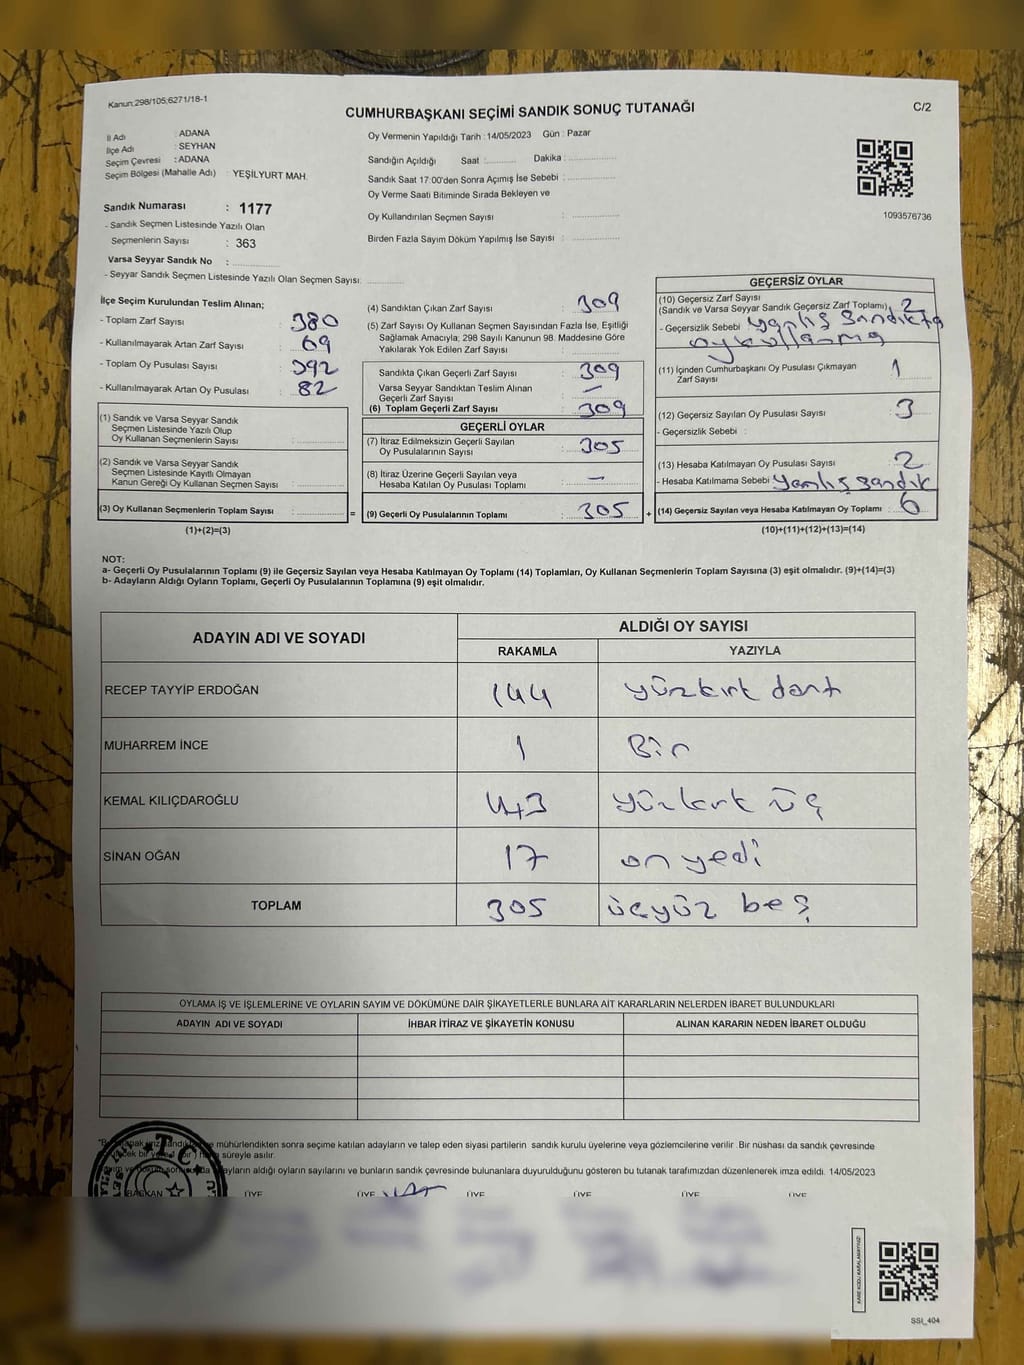 Kanun:298/105;6271/18-1
C/2
CUMHURBAŞKANI SEÇİMİ SANDIK SONUÇ TUTANAĞI
İl Adı : ADANA
İlçe Adı : SEYHAN
Seçim Çevresi : ADANA
Seçim Bölgesi (Mahalle Adı) : YEŞİLYURT MAH.
Sandık Numarası : 1177
- Sandık Seçmen Listesinde Yazılı Olan
Seçmenlerin Sayısı : 363
Varsa Seyyar Sandık No :
- Seyyar Sandık Seçmen Listesinde Yazılı Olan Seçmen Sayısı:
Oy Vermenin Yapıldığı Tarih : 14/05/2023 Gün : Pazar
Sandığın Açıldığı Saat : Dakika :
Sandık Saat 17:00'den Sonra Açımış İse Sebebi :
Oy Verme Saati Bitiminde Sırada Bekleyen ve
Oy Kullandırılan Seçmen Sayısı :
Birden Fazla Sayım Döküm Yapılmış İse Sayısı :
1093576736
İlçe Seçim Kurulundan Teslim Alınan;
- Toplam Zarf Sayısı : 380
- Kullanılmayarak Artan Zarf Sayısı : 69
- Toplam Oy Pusulası Sayısı : 392
- Kullanılmayarak Artan Oy Pusulası : 82
(1) Sandık ve Varsa Seyyar Sandık
Seçmen Listesinde Yazılı Olup
Oy Kullanan Seçmenlerin Sayısı :
(2) Sandık ve Varsa Seyyar Sandık
Seçmen Listesinde Kayıtlı Olmayan
Kanun Gereği Oy Kullanan Seçmen Sayısı :
(3) Oy Kullanan Seçmenlerin Toplam Sayısı :
(1)+(2)=(3)
(4) Sandıktan Çıkan Zarf Sayısı : 309
(5) Zarf Sayısı Oy Kullanan Seçmen Sayısından Fazla İse, Eşitliği
Sağlamak Amacıyla; 298 Sayılı Kanunun 98. Maddesine Göre
Yakılarak Yok Edilen Zarf Sayısı :
Sandıkta Çıkan Geçerli Zarf Sayısı : 309
Varsa Seyyar Sandıktan Teslim Alınan
Geçerli Zarf Sayısı : —
(6) Toplam Geçerli Zarf Sayısı : 309
GEÇERLİ OYLAR
(7) İtiraz Edilmeksizin Geçerli Sayılan
Oy Pusulalarının Sayısı : 305
(8) İtiraz Üzerine Geçerli Sayılan veya
Hesaba Katılan Oy Pusulası Toplamı : —
= (9) Geçerli Oy Pusulalarının Toplamı : 305 +
GEÇERSİZ OYLAR
(10) Geçersiz Zarf Sayısı
(Sandık ve Varsa Seyyar Sandık Geçersiz Zarf Toplamı) : 2
- Geçersizlik Sebebi : yanlış sandıkta
oy kullanma
(11) İçinden Cumhurbaşkanı Oy Pusulası Çıkmayan
Zarf Sayısı : 1
(12) Geçersiz Sayılan Oy Pusulası Sayısı : 3
- Geçersizlik Sebebi :
(13) Hesaba Katılmayan Oy Pusulası Sayısı : 2
- Hesaba Katılmama Sebebi : yanlış sandık
(14) Geçersiz Sayılan veya Hesaba Katılmayan Oy Toplamı : 6
(10)+(11)+(12)+(13)=(14)
NOT:
a- Geçerli Oy Pusulalarının Toplamı (9) ile Geçersiz Sayılan veya Hesaba Katılmayan Oy Toplamı (14) Toplamları, Oy Kullanan Seçmenlerin Toplam Sayısına (3) eşit olmalıdır. (9)+(14)=(3)
b- Adayların Aldığı Oyların Toplamı, Geçerli Oy Pusulalarının Toplamına (9) eşit olmalıdır.
ADAYIN ADI VE SOYADI
ALDIĞI OY SAYISI
RAKAMLA YAZIYLA
RECEP TAYYİP ERDOĞAN 144 yüzkırk dört
MUHARREM İNCE 1 Bir
KEMAL KILIÇDAROĞLU 143 yüzkırk üç
SİNAN OĞAN 17 on yedi
TOPLAM 305 üçyüz beş
OYLAMA İŞ VE İŞLEMLERİNE VE OYLARIN SAYIM VE DÖKÜMÜNE DAİR ŞİKAYETLERLE BUNLARA AİT KARARLARIN NELERDEN İBARET BULUNDUKLARI
ADAYIN ADI VE SOYADI İHBAR İTİRAZ VE ŞİKAYETİN KONUSU ALINAN KARARIN NEDEN İBARET OLDUĞU
mühürlendikten sonra seçime katılan adayların ve talep eden siyasi partilerin sandık kurulu üyelerine veya gözlemcilerine verilir. Bir nüshası da sandık çevresinde
süreyle asılır.
adayların aldığı oyların sayılarını ve bunların sandık çevresinde bulunanlara duyurulduğunu gösteren bu tutanak tarafımızdan düzenlenerek imza edildi. 14/05/2023
BAŞKAN ÜYE ÜYE ÜYE ÜYE ÜYE ÜYE
T.C.
SSI_404